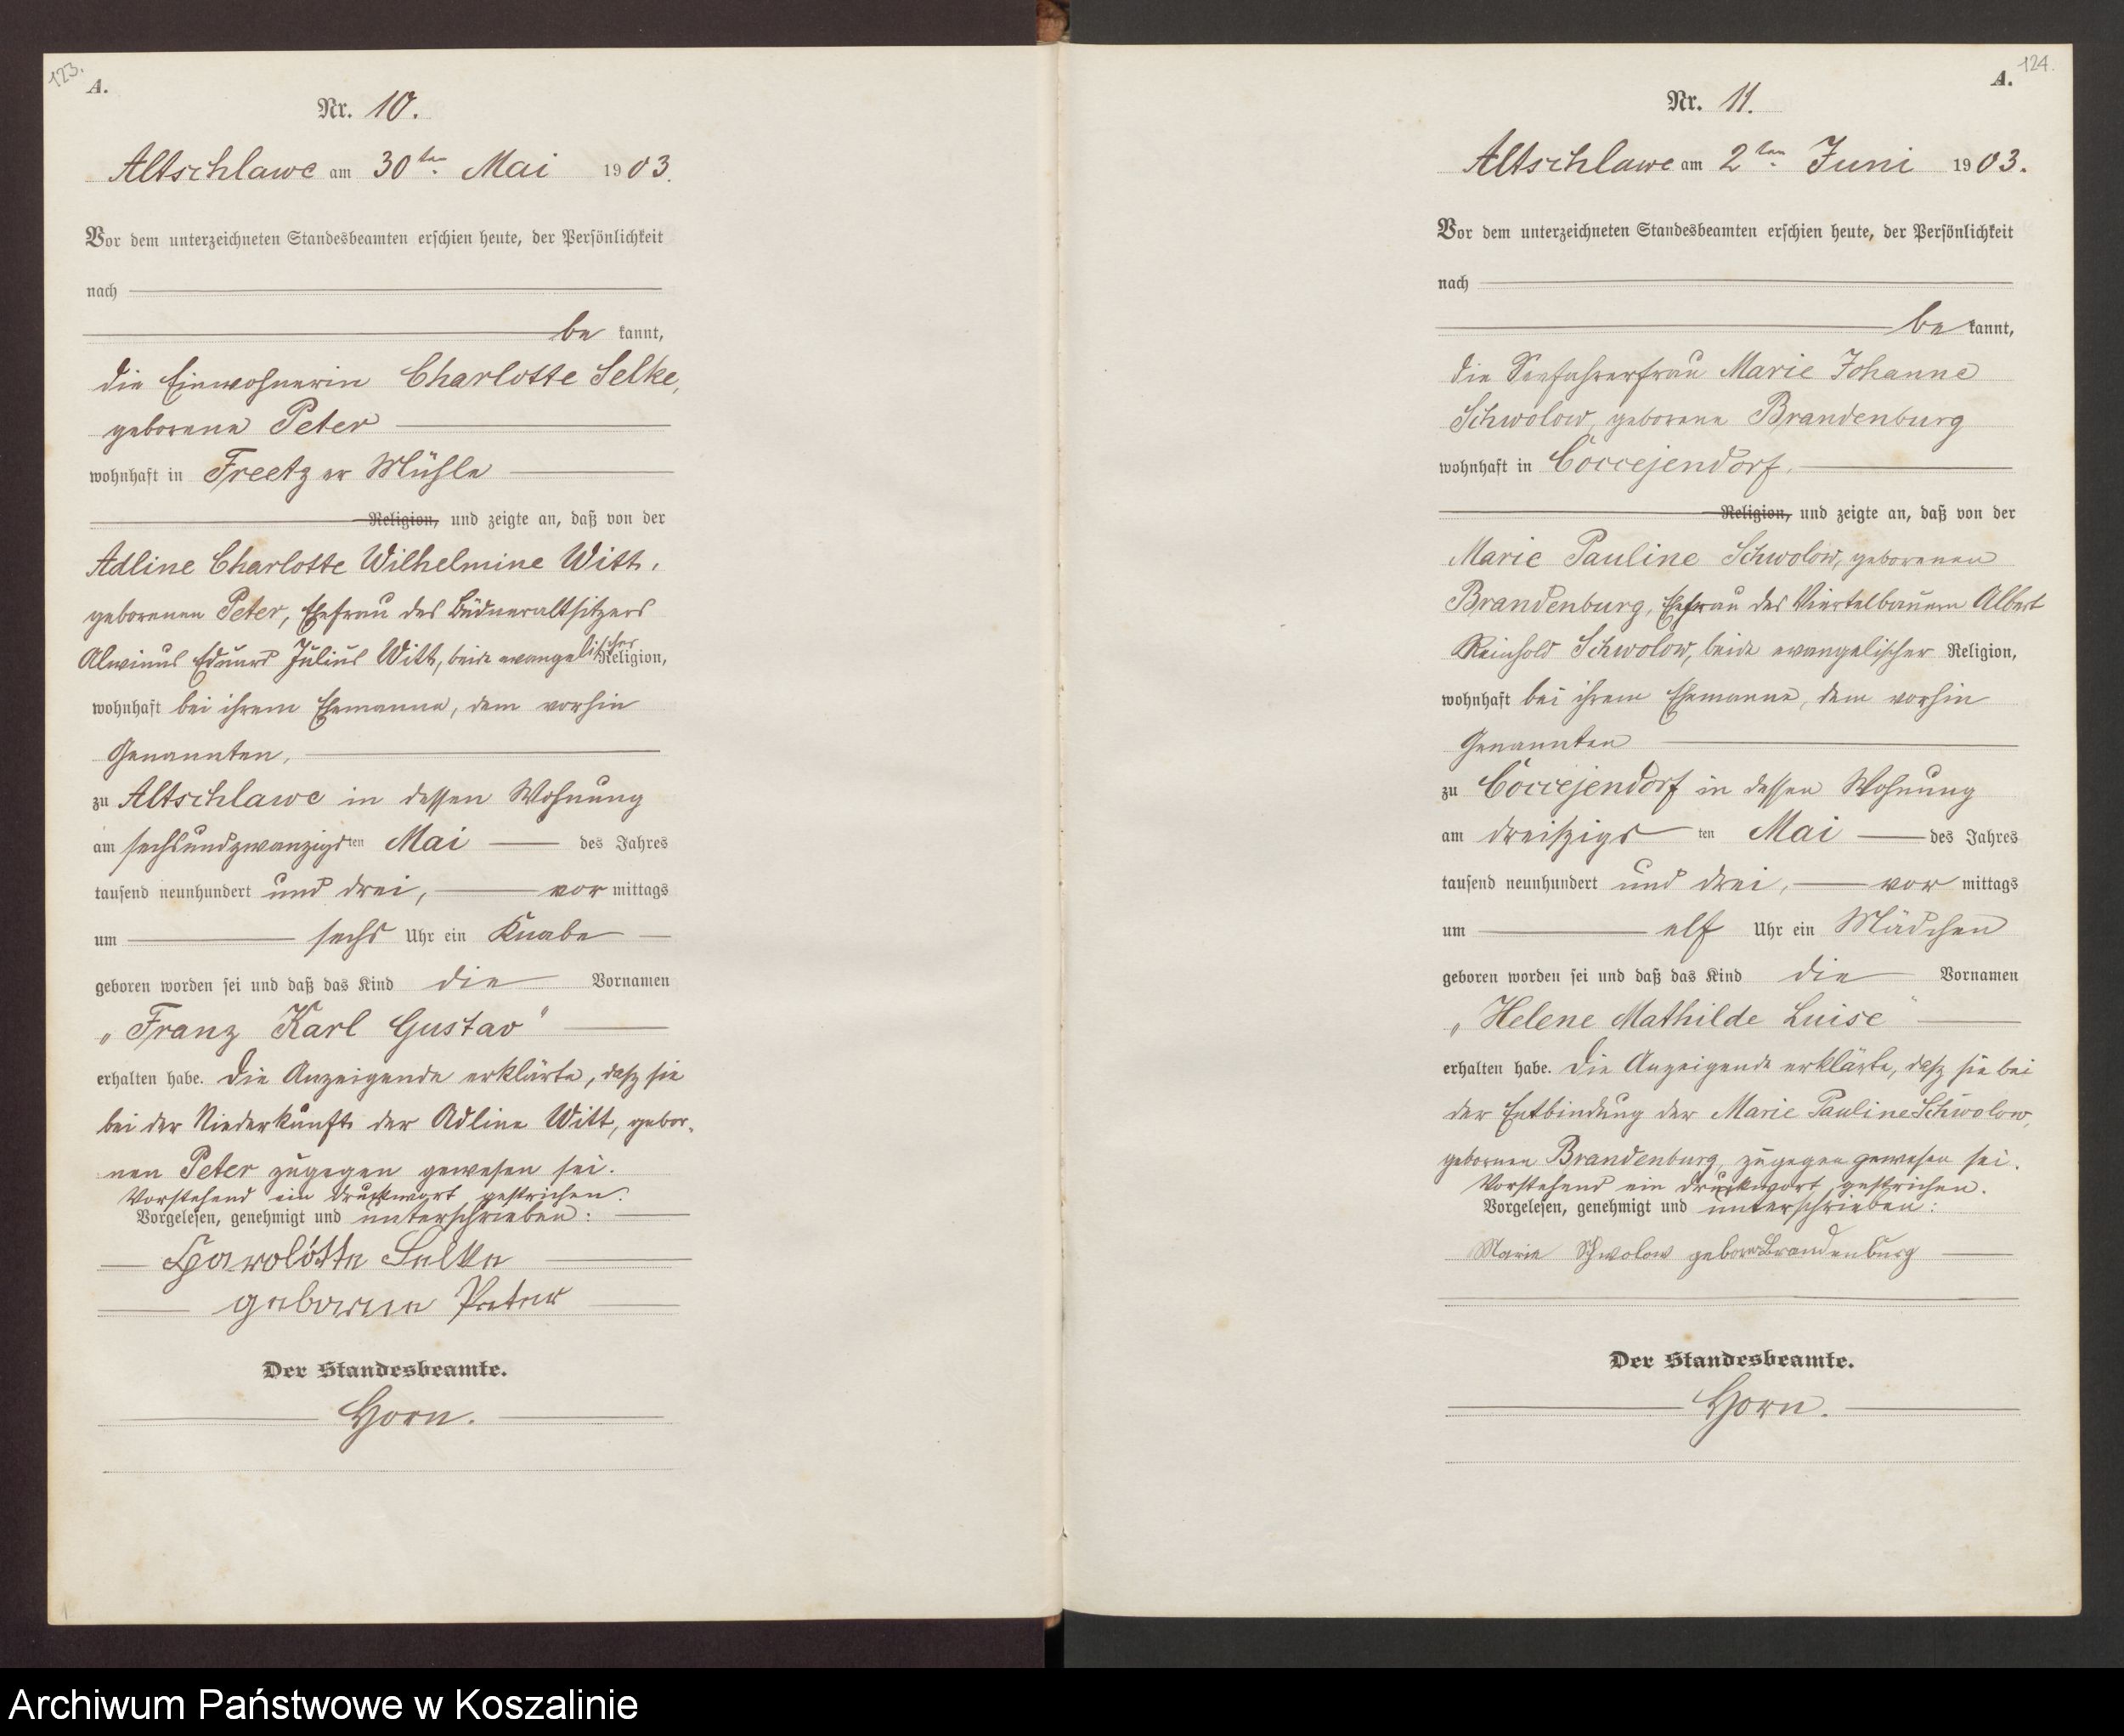 123.
A.
Nr. 10.
Altschlawe am 30ten Mai 1903.
Vor dem unterzeichneten Standesbeamten erschien heute, der Persönlichkeit
nach
be kannt,
die Einwohnerin Charlotte Selke,
geborene Peter
wohnhaft in Freetzer Mühle
Religion, und zeigte an, daß von der
Adline Charlotte Wilhelmine Witt,
geborenen Peter, Ehefrau des Büdneraltsitzers
Alwinus Eduard Julius Witt, beide evangelischer Religion,
wohnhaft bei ihrem Ehemanne, dem vorhin
Genannten,
zu Altschlawe in dessen Wohnung
am sechsundzwanzigsten Mai des Jahres
tausend neunhundert und drei, vor mittags
um sechs Uhr ein Knabe
geboren worden sei und daß das Kind die Vornamen
„Franz Karl Gustav"
erhalten habe. Die Anzeigende erklärte, daß sie
bei der Niederkunft der Adline Witt, gebor-
nen Peter zugegen gewesen sei.
Vorstehend ein Druckwort gestrichen.
Vorgelesen, genehmigt und unterschrieben:
Charolotte Selke
geborene Peter
Der Standesbeamte.
Horn.
124.
A.
Nr. 11.
Altschlawe am 2ten Juni 1903.
Vor dem unterzeichneten Standesbeamten erschien heute, der Persönlichkeit
nach
be kannt,
die Seefahrerfrau Marie Johanne
Schwolow, geborene Brandenburg
wohnhaft in Coccejendorf,
Religion, und zeigte an, daß von der
Marie Pauline Schwolow, geborenen
Brandenburg, Ehefrau des Viertelbauern Albert
Reinhold Schwolow, beide evangelischer Religion,
wohnhaft bei ihrem Ehemanne, dem vorhin
Genannten
zu Coccejendorf in dessen Wohnung
am dreißigsten Mai des Jahres
tausend neunhundert und drei, vor mittags
um elf Uhr ein Mädchen
geboren worden sei und daß das Kind die Vornamen
„Helene Mathilde Luise"
erhalten habe. Die Anzeigende erklärte, daß sie bei
der Entbindung der Marie Pauline Schwolow,
gebornen Brandenburg, zugegen gewesen sei.
Vorstehend ein Druckwort gestrichen.
Vorgelesen, genehmigt und unterschrieben:
Marie Schwolow geborn Brandenburg
Der Standesbeamte.
Horn.
Archiwum Państwowe w Koszalinie